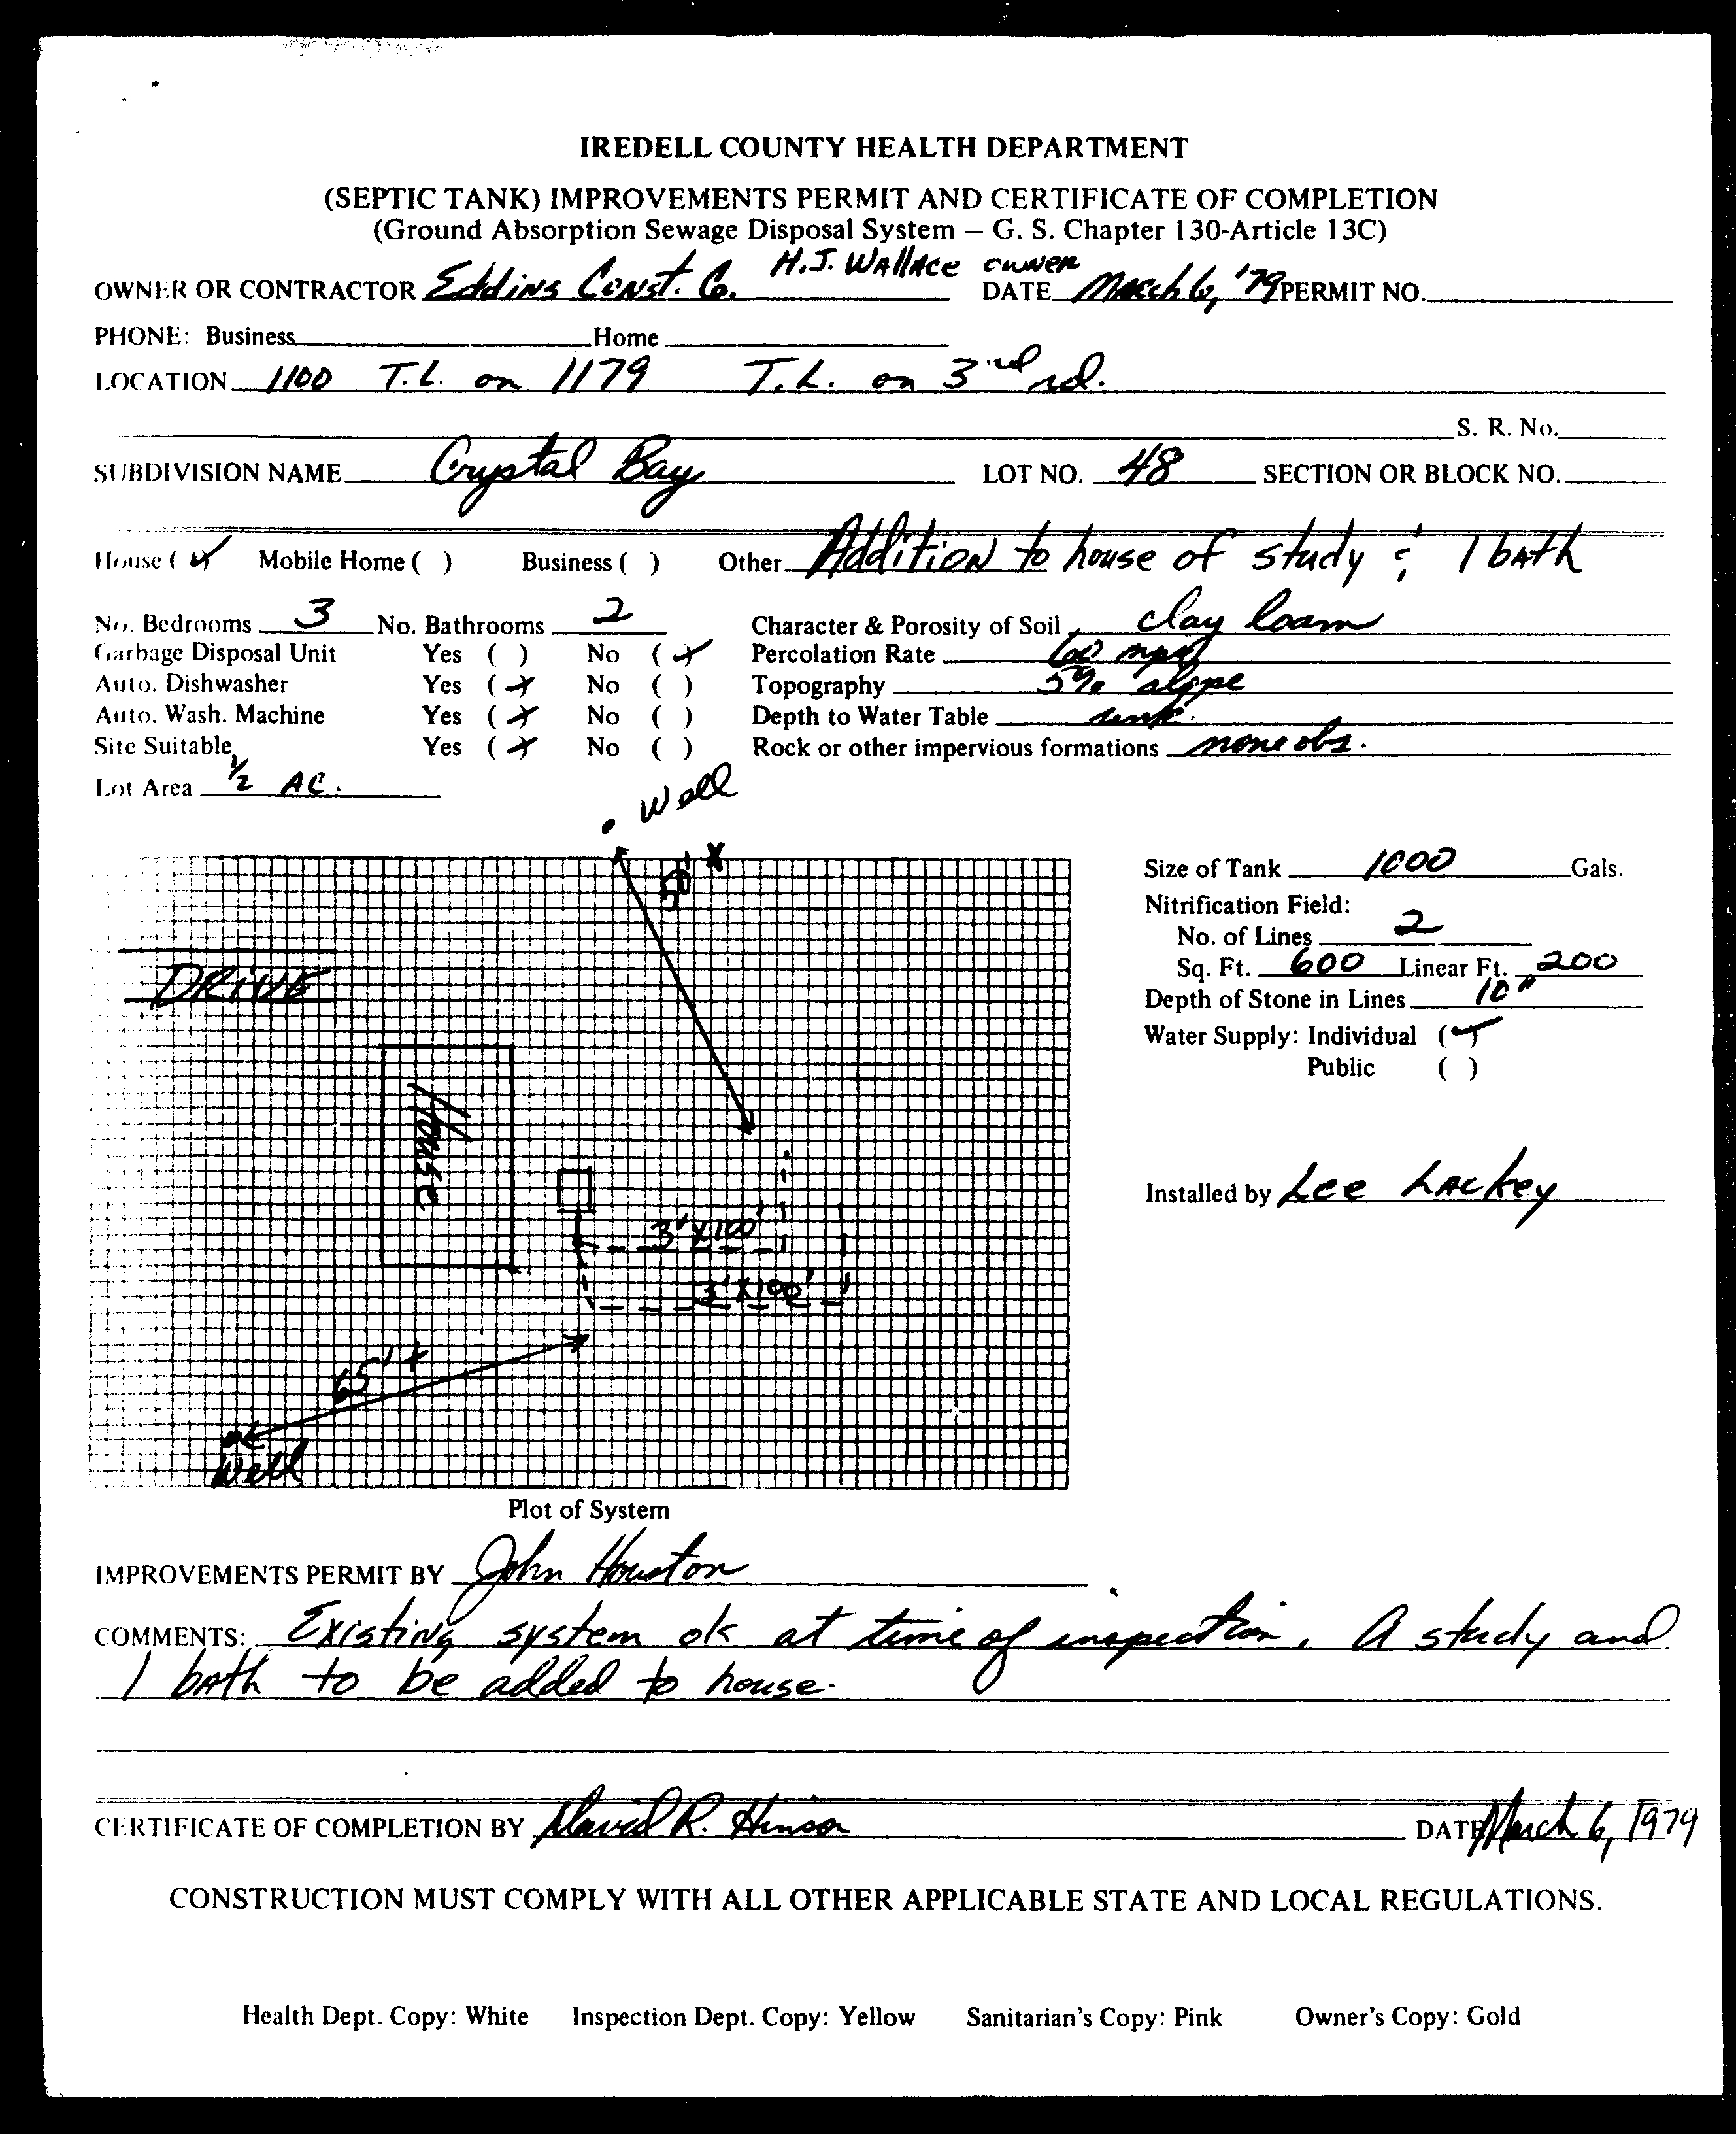 IREDELL COUNTY HEALTH DEPARTMENT
(SEPTIC TANK) IMPROVEMENTS PERMIT AND CERTIFICATE OF COMPLETION
(Ground Absorption Sewage Disposal System – G. S. Chapter 130-Article 13C)
H.J. Wallace owner
OWNER OR CONTRACTOR Eddins Const. Co. DATE March 6, '79 PERMIT NO.
PHONE: Business Home
LOCATION 1100 T.L. on 1179 T.L. on 3rd rd.
S. R. No.
SUBDIVISION NAME Crystal Bay LOT NO. 48 SECTION OR BLOCK NO.
House (✓) Mobile Home ( ) Business ( ) Other Addition to house of study & 1 bath
No. Bedrooms 3 No. Bathrooms 2 Character & Porosity of Soil clay loam
Garbage Disposal Unit Yes ( ) No (✓) Percolation Rate 60 mpi
Auto. Dishwasher Yes (✓) No ( ) Topography 5% slope
Auto. Wash. Machine Yes (✓) No ( ) Depth to Water Table unk.
Site Suitable Yes (✓) No ( ) Rock or other impervious formations none obs.
Lot Area 1/2 AC.
Well
50'
Size of Tank 1000 Gals.
Nitrification Field:
No. of Lines 2
DRIVE
Sq. Ft. 600 Linear Ft. 200
Depth of Stone in Lines 10"
Water Supply: Individual (✓)
Public ( )
House
Installed by Lee Lackey
3' X 100'
3' X 100'
65' +
Well
Plot of System
IMPROVEMENTS PERMIT BY John Houston
COMMENTS: Existing system ok at time of inspection. A study and
1 bath to be added to house.
CERTIFICATE OF COMPLETION BY David R. Hinson DATE March 6, 1979
CONSTRUCTION MUST COMPLY WITH ALL OTHER APPLICABLE STATE AND LOCAL REGULATIONS.
Health Dept. Copy: White Inspection Dept. Copy: Yellow Sanitarian's Copy: Pink Owner's Copy: Gold